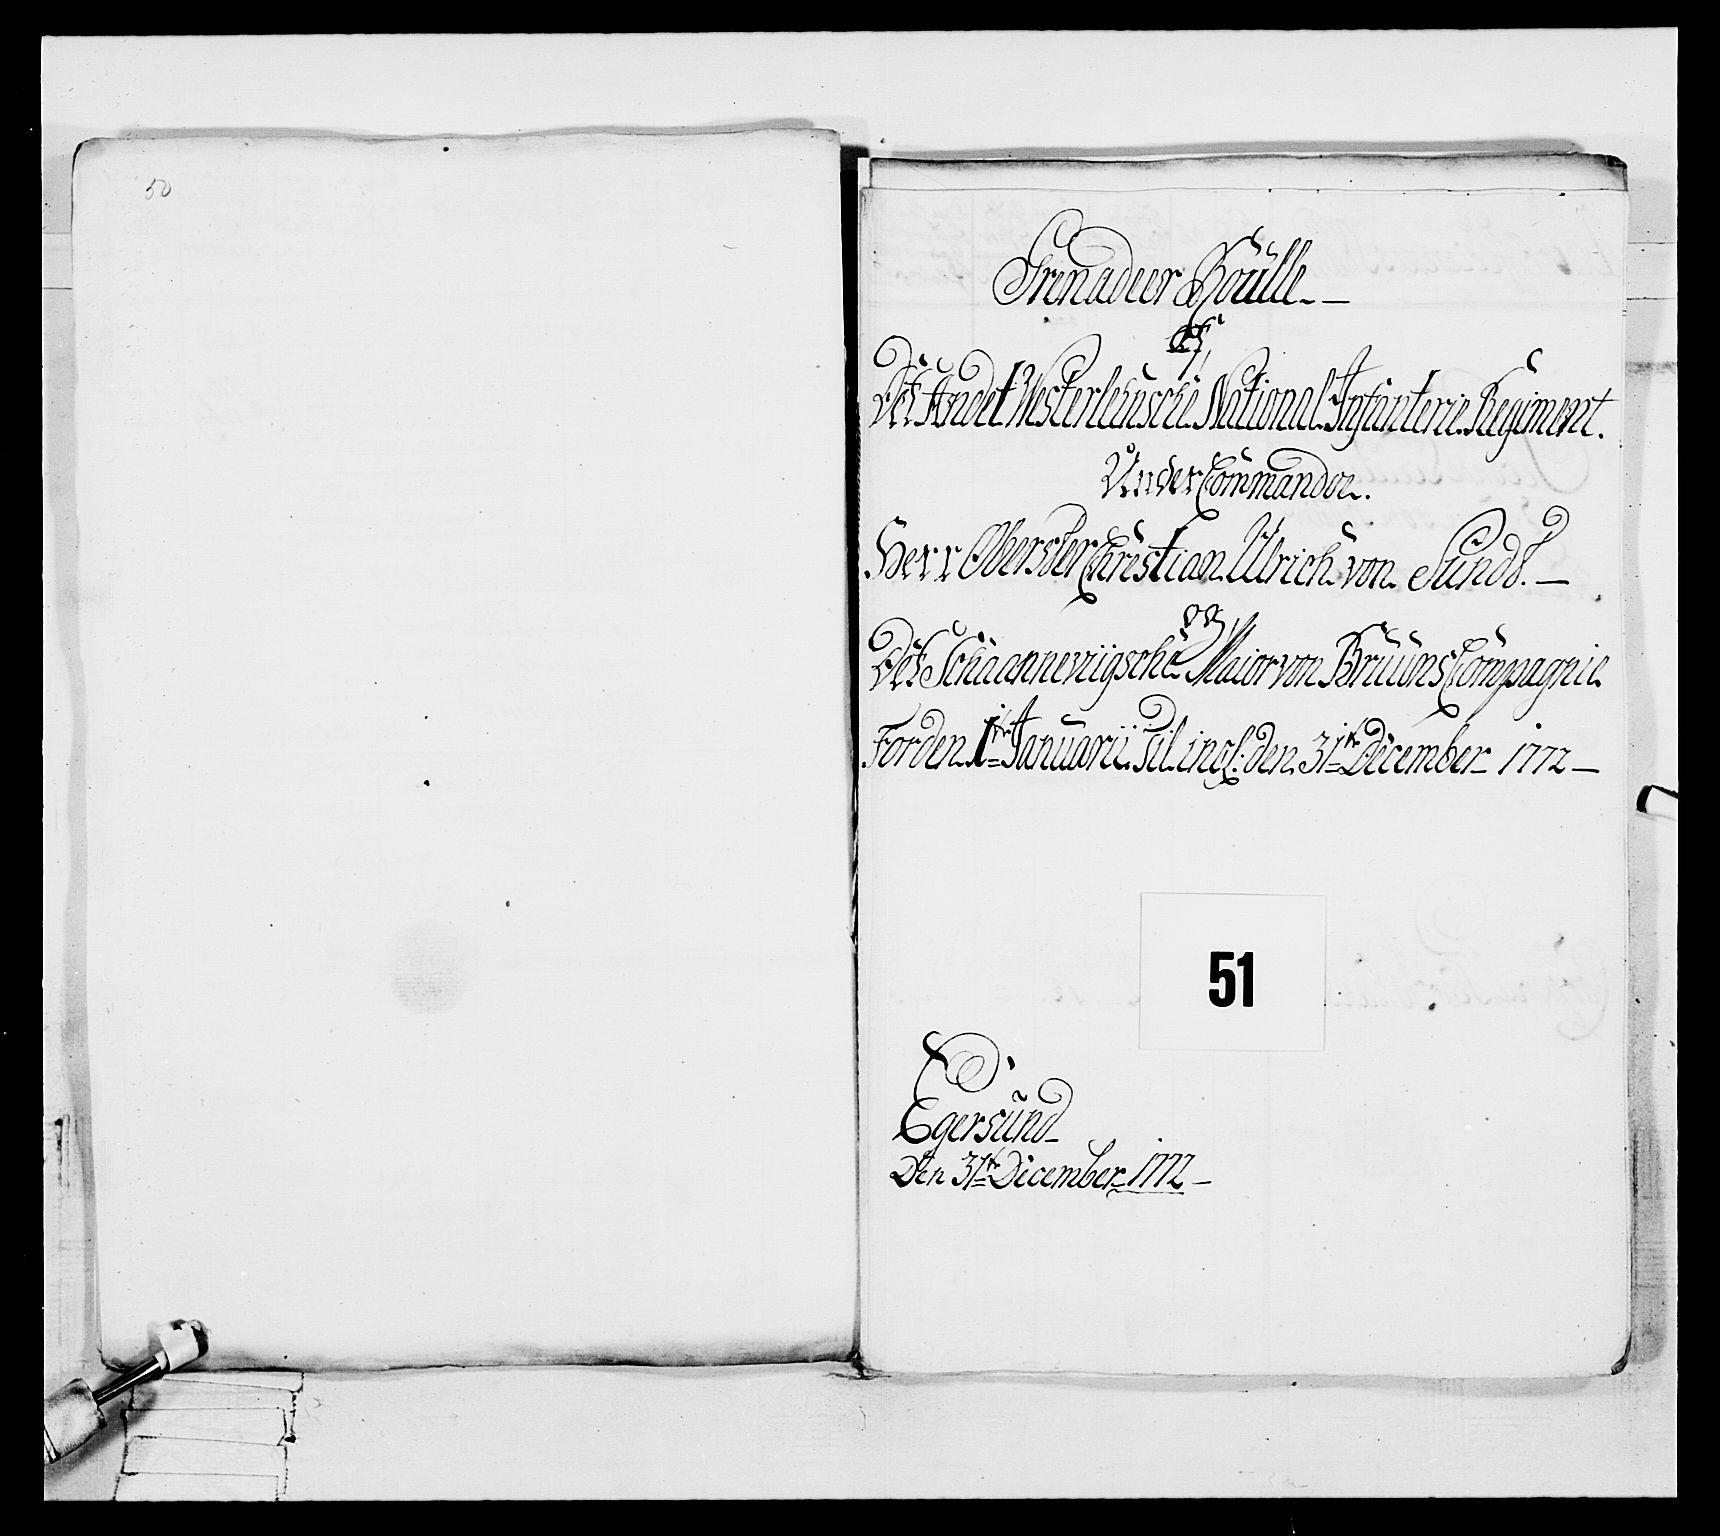 50
Grenadeer Roulle
af
Det Andet Westerlehnsche National Infanterie Regiment.
Under Commandoe.
Herr Oberster Christian Ulrich von Sundt.
og
Det Schaanneviigsche Maior von Bruuns Compagnie
For den 1te Januarii til incl: den 31te December 1772
51
Egersund
Den 31te December 1772